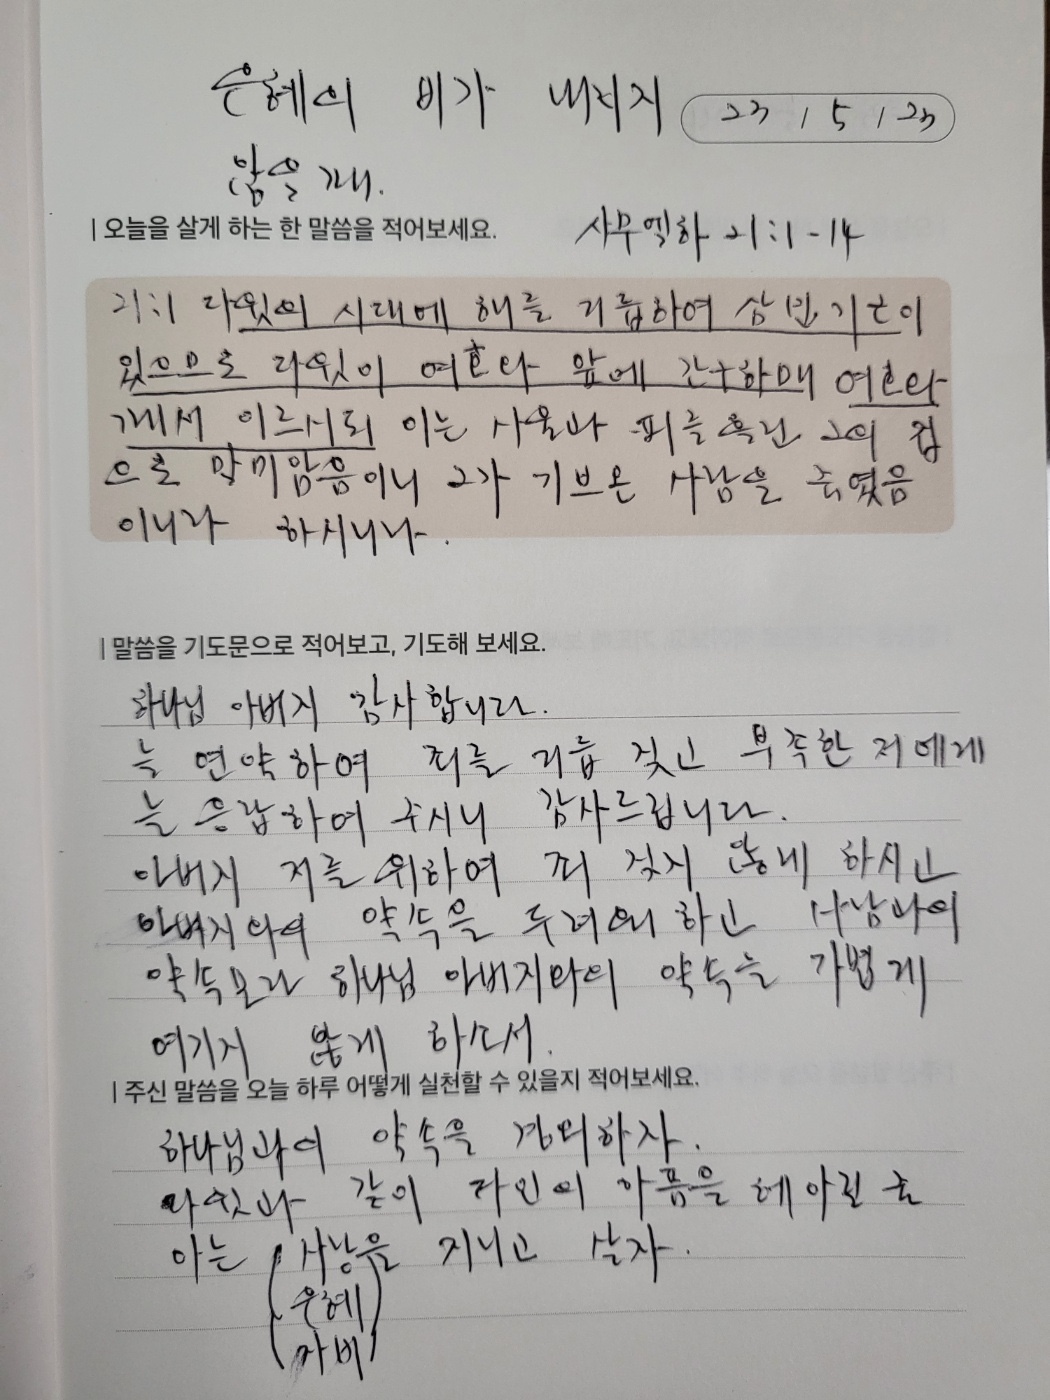 은혜의 비가 내리지 23 / 5 / 23
않을 때.
| 오늘을 살게 하는 한 말씀을 적어보세요. 사무엘하 21:1-14
21:1 다윗의 시대에 해를 거듭하여 삼년 기근이
있으므로 다윗이 여호와 앞에 간구하매 여호와
께서 이르시되 이는 사울과 피를 흘린 그의 집
으로 말미암음이니 그가 기브온 사람을 죽였음
이니라 하시니라.
| 말씀을 기도문으로 적어보고, 기도해 보세요.
하나님 아버지 감사합니다.
늘 연약하여 죄를 거듭 짖고 부족한 저에게
늘 응답하여 주시니 감사드립니다.
아버지 저를 위하여 죄 짖지 않게 하시고
아버지와의 약속을 두려워 하고 사람과의
약속보다 하나님 아버지와의 약속을 가볍게
여기지 않게 하소서.
| 주신 말씀을 오늘 하루 어떻게 실천할 수 있을지 적어보세요.
하나님과의 약속을 경외하자.
다윗과 같이 타인의 아픔을 헤아린 줄
아는 (사랑을 지니고 살자.
은혜
자비)